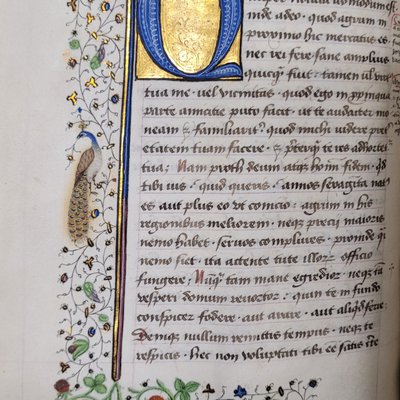 Q
nuper notitia admodum e
inde adeo · quod agrum in
proximo hic mercatus es ·
nec rei fere sane amplius
quicq̃ fuit · tamen ul uir
tua me · uel vicinitas · quod ego in ꝓpinqua
parte amicitie puto facit · ut te audaiter mo
neam et familiarit̃ · quod michi uidere p̃ter
etatem tuam facere · et p̃terq̃ te res adhor
tur tua · Nam proth deum atq̃ hoĩm fidem · qd
tibi uis · quid queris · annos sexaginta nat
es aut plus eo ut conicio · agrum in his
regionibus meliorem · neq̃ precij maioris
nemo habet · seruos complures · proinde q̃
nemo siet · ita attente tute illoꝝ officio
fungere · Nũq̃ tam mane egredior · neq̃ tã
vesperi domum reuortor · quin te in fundo
conspicer fodere · aut arare · aut aliqd ferre ·
Deniq̃ nullum remittis tempus · neq̃ te
respicis · hec non voluptati tibi eẽ satis